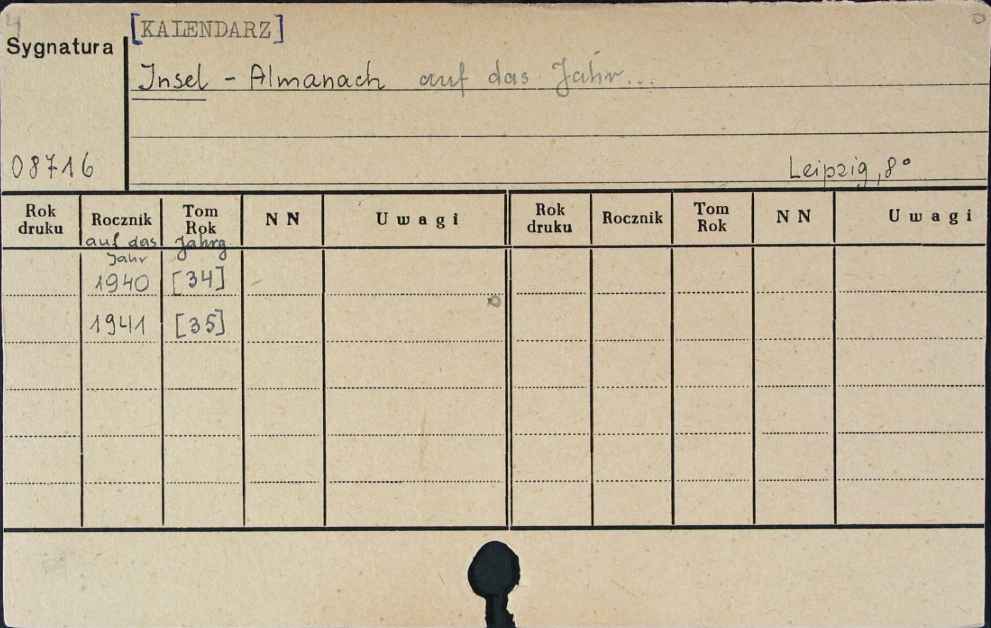 [KALENDARZ]
Sygnatura
Insel - Almanach auf das Jahr...
08716
Leipzig, 8°
Rok druku Rocznik Tom Rok N N Uwagi Rok druku Rocznik Tom Rok N N Uwagi
auf das Jahr Jahrg
1940 [34]
1941 [35]